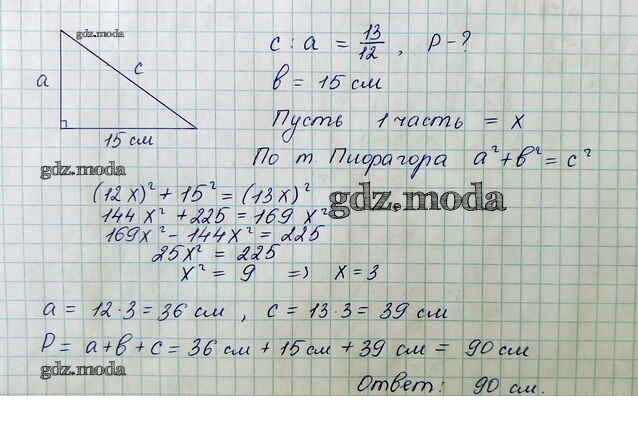 gdz.moda
c : a = 13/12 , P - ?
a
c
в = 15 см
15 см
Пусть 1 часть = x
gdz.moda
По т Пифагора a² + в² = c²
(12x)² + 15² = (13x)²
gdz.moda
144x² + 225 = 169x²
169x² - 144x² = 225
25x² = 225
x² = 9 => x = 3
a = 12·3 = 36 см , c = 13·3 = 39 см
P = a + в + c = 36 см + 15 см + 39 см = 90 см
gdz.moda
Ответ: 90 см.